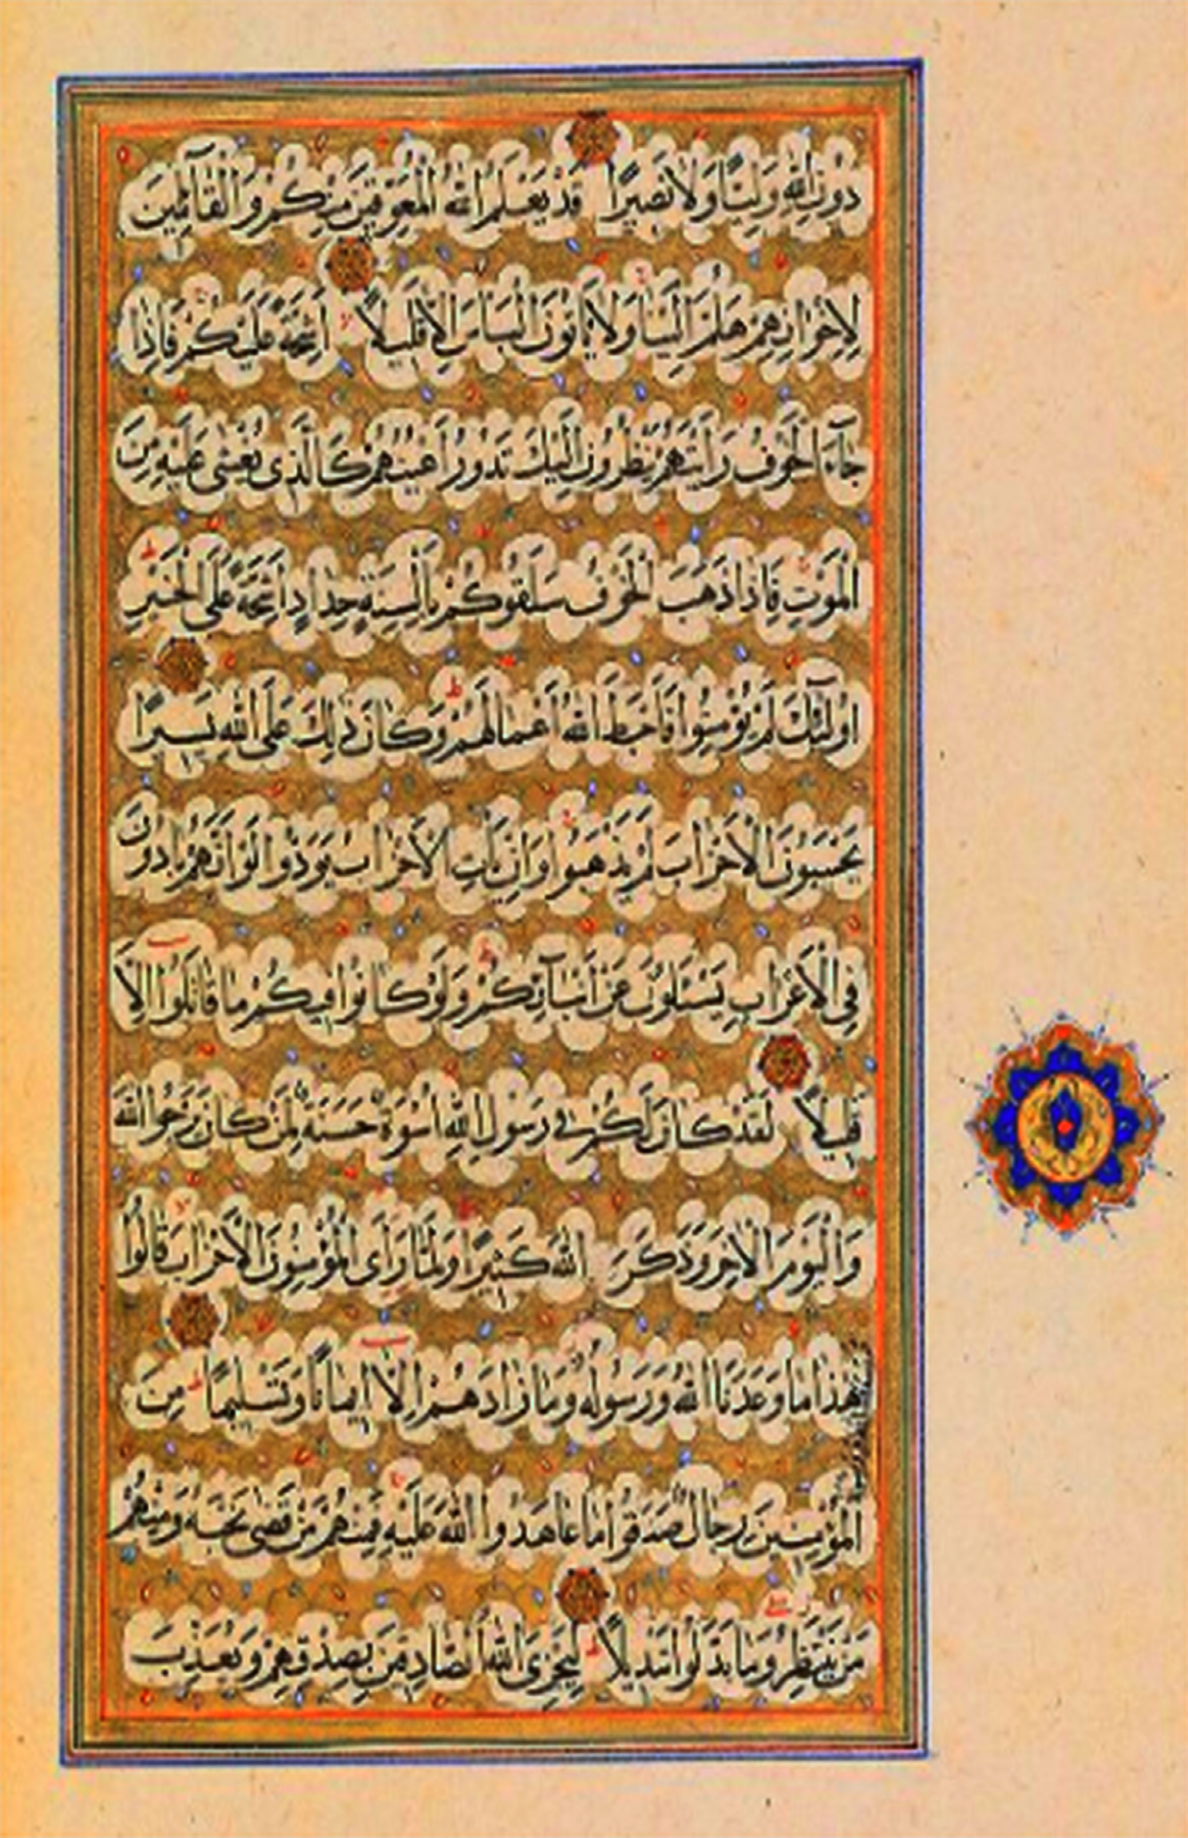 دُونِ اللهِ وَلِيًّا وَلَا نَصِيرًا قَدْ يَعْلَمُ اللهُ الْمُعَوِّقِينَ مِنْكُمْ وَالْقَآئِلِينَ
لِإِخْوَانِهِمْ هَلُمَّ إِلَيْنَا وَلَا يَأْتُونَ الْبَأْسَ إِلَّا قَلِيلًا أَشِحَّةً عَلَيْكُمْ فَإِذَا
جَآءَ الْخَوْفُ رَأَيْتَهُمْ يَنْظُرُونَ إِلَيْكَ تَدُورُ أَعْيُنُهُمْ كَالَّذِى يُغْشَى عَلَيْهِ مِنَ
الْمَوْتِ فَإِذَا ذَهَبَ الْخَوْفُ سَلَقُوكُمْ بِأَلْسِنَةٍ حِدَادٍ أَشِحَّةً عَلَى الْخَيْرِ
أُولَٰٓئِكَ لَمْ يُؤْمِنُوا فَأَحْبَطَ اللهُ أَعْمَالَهُمْ وَكَانَ ذَٰلِكَ عَلَى اللهِ يَسِيرًا
يَحْسَبُونَ الْأَحْزَابَ لَمْ يَذْهَبُوا وَإِنْ يَأْتِ الْأَحْزَابُ يَوَدُّوا لَوْ أَنَّهُمْ بَادُونَ
فِي الْأَعْرَابِ يَسْئَلُونَ عَنْ أَنْبَآئِكُمْ وَلَوْ كَانُوا فِيكُمْ مَا قَاتَلُوا إِلَّا
قَلِيلًا لَقَدْ كَانَ لَكُمْ فِي رَسُولِ اللهِ أُسْوَةٌ حَسَنَةٌ لِمَنْ كَانَ يَرْجُوا اللهَ
وَالْيَوْمَ الْآخِرَ وَذَكَرَ اللهَ كَثِيرًا وَلَمَّا رَأَى الْمُؤْمِنُونَ الْأَحْزَابَ قَالُوا
هَٰذَا مَا وَعَدَنَا اللهُ وَرَسُولُهُ وَمَا زَادَهُمْ إِلَّا إِيمَانًا وَتَسْلِيمًا مِنَ
الْمُؤْمِنِينَ رِجَالٌ صَدَقُوا مَا عَاهَدُوا اللهَ عَلَيْهِ فَمِنْهُمْ مَنْ قَضَى نَحْبَهُ وَمِنْهُمْ
مَنْ يَنْتَظِرُ وَمَا بَدَّلُوا تَبْدِيلًا لِيَجْزِيَ اللهُ الصَّادِقِينَ بِصِدْقِهِمْ وَيُعَذِّبَ